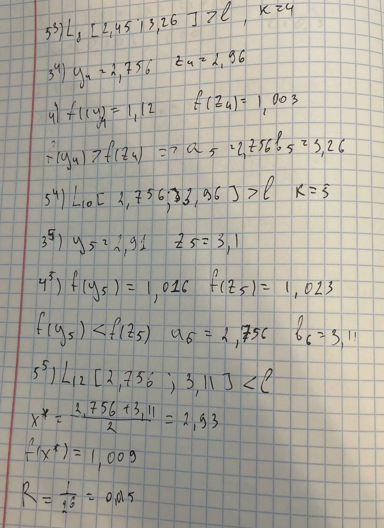 5³) L₈ [2,45; 3,26] > l, k=4
3⁴) y₄ = 2,756 z₄ = 2,96
4) f(y₄) = 1,12 f(z₄) = 1,003
f(y₄) > f(z₄) => a₅ = 2,756 b₅ = 3,26
5⁴) L₁₀ [2,756; 3,96] > l k=5
3⁵) y₅ = 2,91 z₅ = 3,1
4⁵) f(y₅) = 1,016 f(z₅) = 1,023
f(y₅) < f(z₅) a₆ = 2,756 b₆ = 3,11
5⁵) L₁₂ [2,756 ; 3,11] < l
x* = (2,756 + 3,11)/2 = 2,93
f(x*) = 1,009
R = 1/2⁶ = 0,015